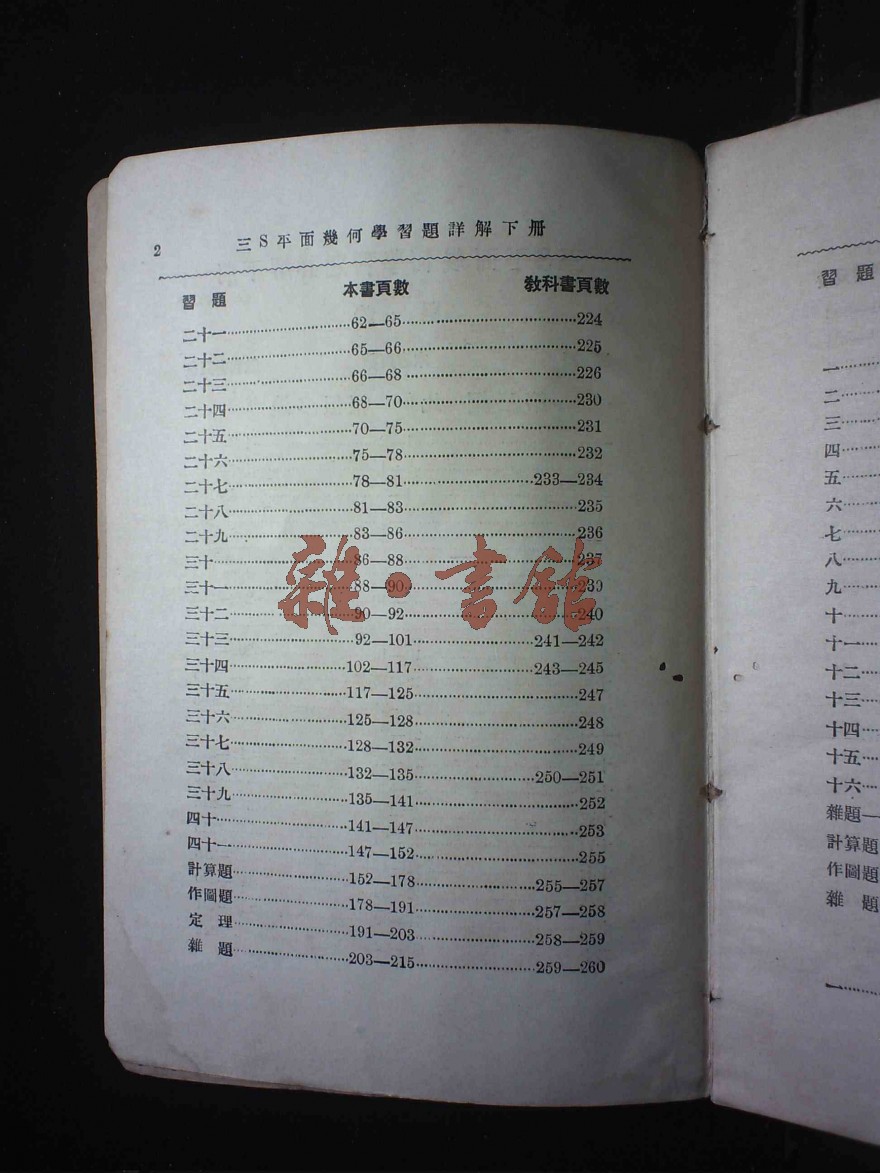 2 三S平面幾何學習題詳解下册
習題 本書頁數 教科書頁數
二十一 62—65 224
二十二 65—66 225
二十三 66—68 226
二十四 68—70 230
二十五 70—75 231
二十六 75—78 232
二十七 78—81 233—234
二十八 81—83 235
二十九 83—86 236
三十 86—88 237
三十一 88—90 239
三十二 90—92 240
三十三 92—101 241—242
三十四 102—117 243—245
三十五 117—125 247
三十六 125—128 248
三十七 128—132 249
三十八 132—135 250—251
三十九 135—141 252
四十 141—147 253
四十一 147—152 255
計算題 152—178 255—257
作圖題 178—191 257—258
定理 191—203 258—259
雜題 203—215 259—260
雜·書館
習題
一
二
三
四
五
六
七
八
九
十
十一
十二
十三
十四
十五
十六
雜題一
計算題
作圖題
雜題
一